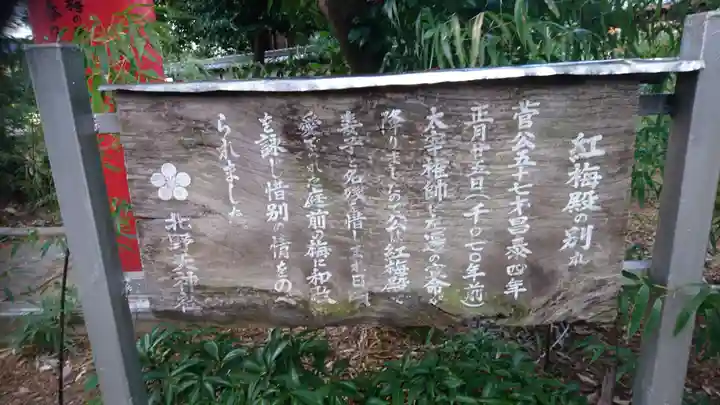 紅梅殿の別れ
菅公五十七才昌泰四年
正月廿五日(千〇七〇年前)
太宰権師し左遷の宣命が
降りました公が紅梅殿で
妻子と死別を惜しまれ日頃
愛でられた庭前の梅に和歌
を詠し惜別の情をのべ
られました
北野天神社
梅の